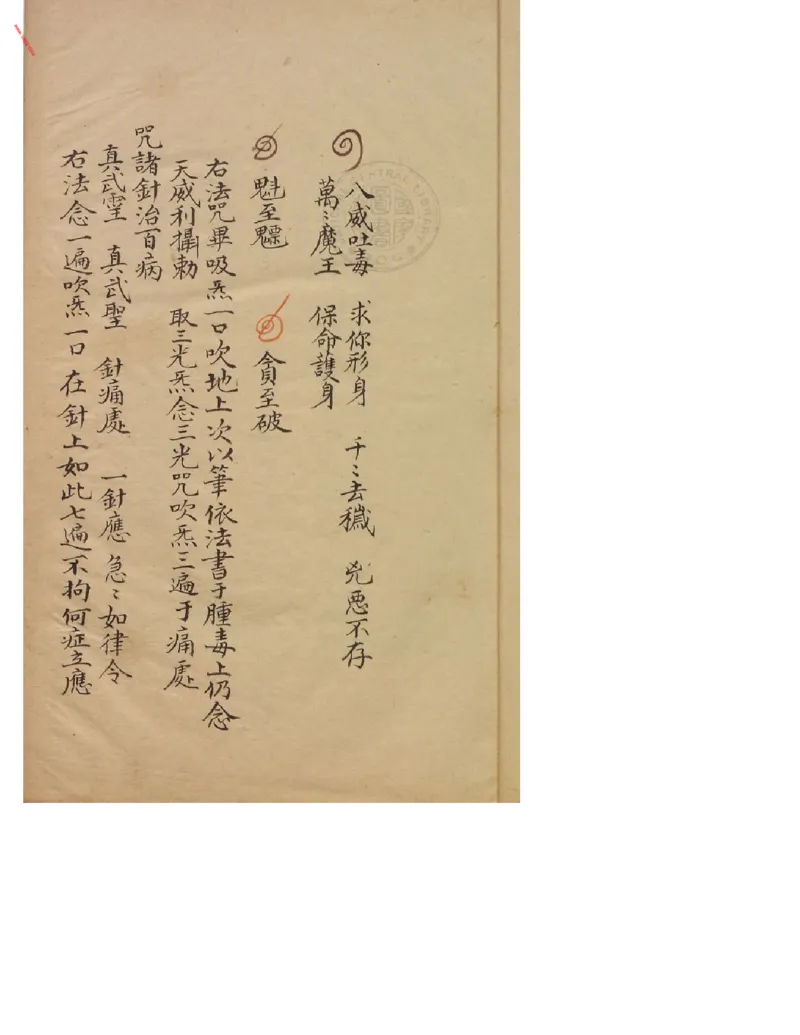 八威吐毒 求你形身 千〻去穢 兇惡不存
萬〻魔王 保命護身
魁至魒 貪至破
右法咒畢吸炁一口吹地上次以筆依法書于腫毒上仍念
天威利攝勅 取三光炁念三光咒吹炁三遍于痛處
咒諸針治百病
真武霊 真武聖 針痛處 一針應 急〻如律令
右法念一遍吹炁一口在針上如此七遍不拘何症立應